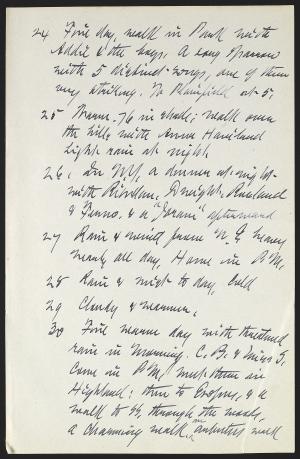 24 Fine day, walk in Park with
Addie & the boys. A song sparrow
with 5 distinct songs, one of them
very striking. To Plainfield at 5.
25 Warm. 76 in shade; walk over
the hills with Anna Haviland
Light rain at night.
26. In N.Y. a dinner at night
with Riordan, & Rowland
& Benno. & a afterward
27 Rain & mist from N. E.
nearly all day, Home in P.M.
28 Rain & mist to day, cold
29 Cloudy & warmer.
30 Fine warm day with threatened
rain in morning. C. B. & Miss G.
come in P.M. meet them in
Highland: then to & a
walk to SS, through the woods,
a charming walk, walk